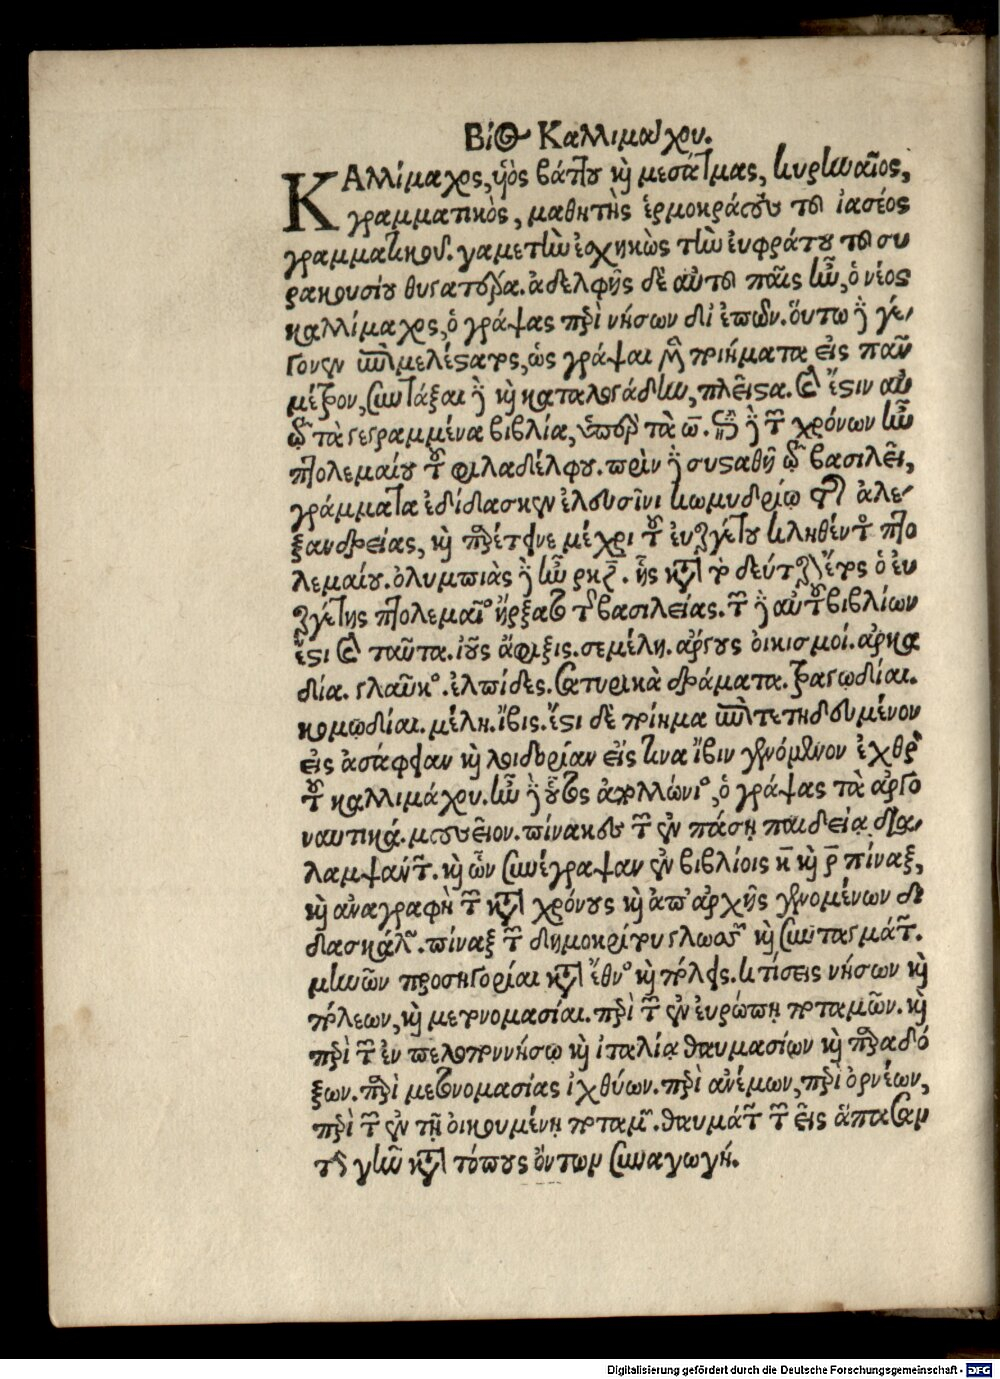 Βίος Καλλιμάχου.
ΚΑλλίμαχος, ὑὸς βάττου καὶ μεσάτμας, κυρηναῖος,
γραμματικὸς, μαθητὴς ἑρμοκράτους τοῦ ἰασέος
γραμματικοῦ. γαμετὴν ἐσχηκὼς τὴν ἐυφράτου τοῦ συ
ρακουσίου θυγατέρα. ἀδελφῆς δὲ αὐτοῦ παῖς ἦν, ὁ νέος
καλλίμαχος, ὁ γράψας περὶ νήσων δι' ἐπῶν. ὅυτω δὲ γέ-
γονεν ἐπιμελέστατος, ὡς γράψαι μὲν ποιήματα εἰς πᾶν
μέτρον, συντάξαι δὲ καὶ καταλογάδην, πλεῖστα. καὶ ἔστιν αὐ
τῷ τὰ γεγραμμένα βιβλία, ὑπὲρ τὰ ω̄. ἐπὶ δὲ τῶν χρόνων ἦν
πτολεμαίου τοῦ φιλαδέλφου. πρὶν δὲ συσταθῆ τῷ βασιλεῖ,
γράμματα ἐδίδασκεν ἐλουσῖνι κωμυδρίῳ τῆς ἀλε-
ξανδρείας, καὶ παρέτεινε μέχρι τοῦ ἐυεργέτου κληθέντος πτο
λεμαίου. ὀλυμπιὰς δὲ ἦν ρκζ. ἧς κατὰ τὸ δεύτερον ἔτος ὁ ἐυ
εργέτης πτολεμαῖος ἤρξατο τῆς βασιλείας. τῶν δὲ αὐτοῦ βιβλίων
ἐστι καὶ ταῦτα. ἰοῦς ἄφιξις. σεμέλη. ἄργους ὀικισμοί. ἀρκα
δία. γλαῦκος. ἐλπίδες. σατυρικὰ δράματα. τραγῳδίαι.
κομῳδίαι. μέλη. ἴβις. ἔστι δὲ ποίημα ἐπιτετηδευμένον
εἰς ἀσάφειαν καὶ λοιδορίαν εἴς τινα ἴβιν γενόμενον ἐχθρὸν
τοῦ καλλιμάχου. ἦν δὲ οὗτος ἀπολλώνιος, ὁ γράψας τὰ ἀργο
ναυτικά. μουσεῖον. πίνακες τῶν ἐν πάσῃ παιδείᾳ δια-
λαμψάντων. καὶ ὧν συνέγραψαν ἐν βιβλίοις κ̄ καὶ ρ̄ πίναξ,
καὶ ἀναγραφὴ τῶν κατὰ χρόνους καὶ ἀπ' ἀρχῆς γενομένων δι
δασκάλων. πίναξ τῶν δημοκρίτου γλωσσῶν καὶ συνταγμάτων.
μηνῶν προσηγορίαι κατὰ ἔθνος καὶ πόλεις. κτίσεις νήσων καὶ
πόλεων, καὶ μετονομασίαι. περὶ τῶν ἐν ἐυρώπῃ ποταμῶν. καὶ
περὶ τῶν ἐν πελοποννήσῳ καὶ ἰταλίᾳ θαυμασίων καὶ παραδό
ξων. περὶ μετονομασίας ἰχθύων. περὶ ἀνέμων, περὶ ὀρνέων,
περὶ τῶν ἐν τῇ ὀικουμένῃ ποταμῶν. θαυμάτων τῶν εἰς ἅπασαν
τὴν γῆν κατὰ τόπους ὄντων συναγωγή.
Digitalisierung gefördert durch die Deutsche Forschungsgemeinschaft - DFG